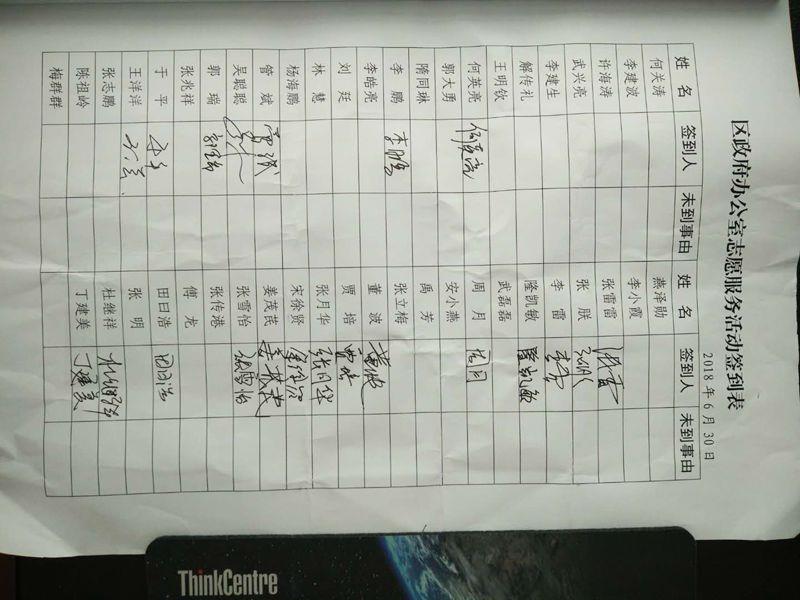 区政府办公室志愿服务活动签到表
2018 年 6 月 30 日
姓 名 签到人 未到事由 姓 名 签到人 未到事由
何关涛 燕泽勋
李建波 李小霞
许海涛 张雷雷 张雷
武兴亮 张 朕 张朕
李建生 李 雷 李雷
解传礼 隆凯敏 隆凯敏
王明钦 武磊磊
何英亮 何英亮 周 月 周月
郭大勇 安小燕
隋同琳 禹 芳
李 鹏 李鹏 张立梅
李皓亮 董 波 董波
刘 廷 贾 培 贾培
林 慧 张月华 张月华
杨海鹏 宋徐贤
管 斌 管斌 姜茂芪 姜茂芪
吴聪聪 张雪怡 张雪怡
郭 瑞 郭瑞 张传港
张兆祥 傅 龙
于 平 于平 田曰浩 田曰浩
王洋洋 张 明
张志鹏 杜继祥 杜继祥
陈祖岭 丁建美 丁建美
梅群群
ThinkCentre